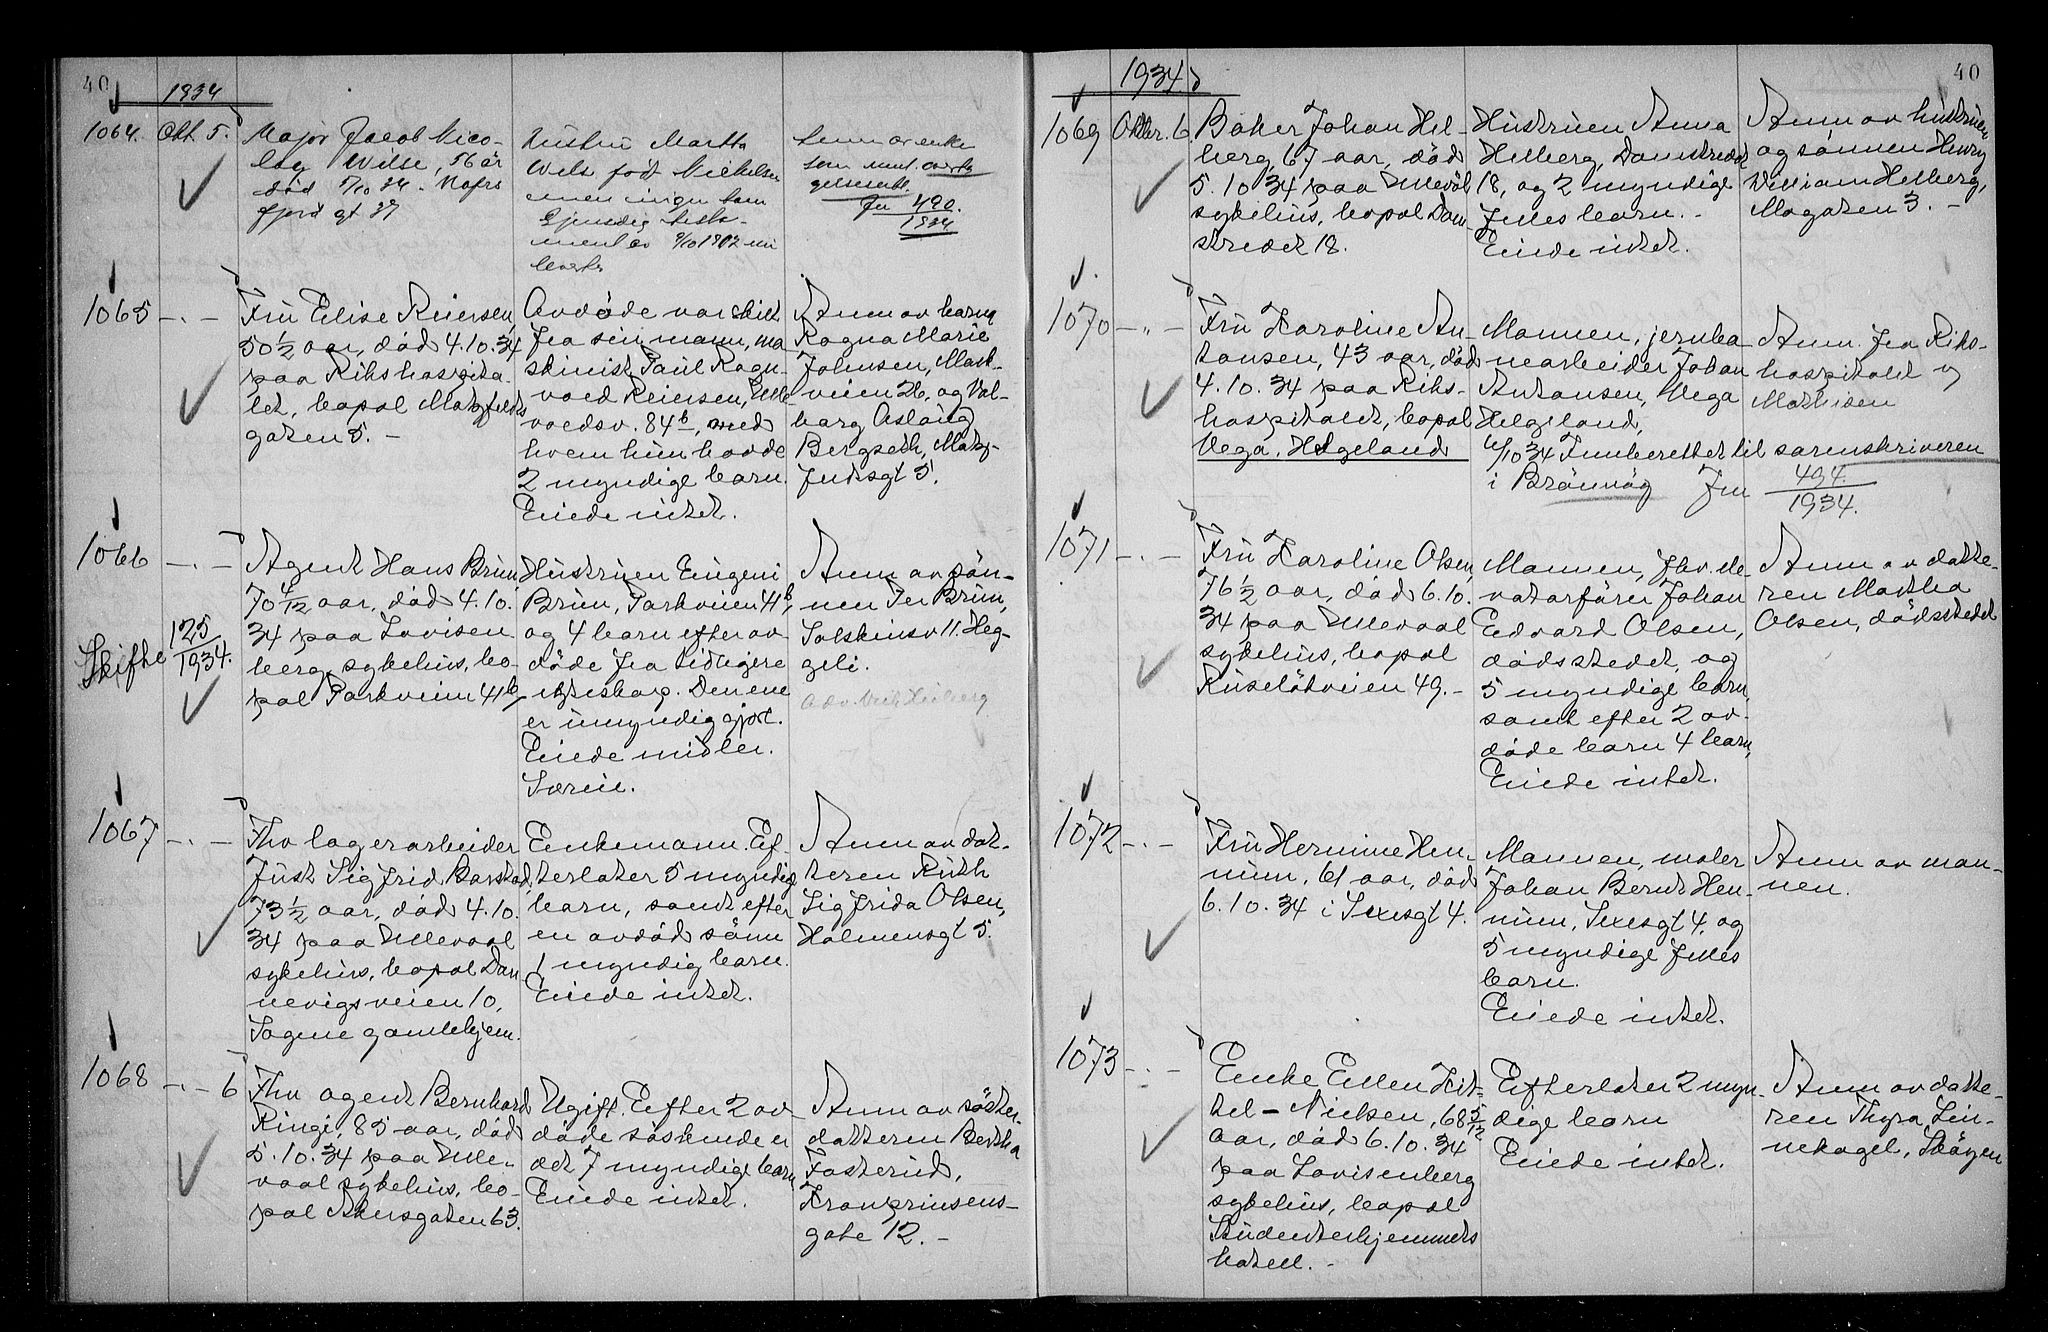 40
1934
1064. Okt. 5.
Major Jacob Nico-
lay Wilse, 56 år
død 5/10 34 - Hafrs
fjord gt 37
Hustru Martha
født Mickelsen
men ingen barn
Gjensidig testa-
ment av 9/10 1902 
Anm av enke
som 
Jnr 490.
1934
1065 - " -
Fru Elise Reiersen,
50 1/2 aar, død 4.10.34
paa Rikshospita-
let, bopæl Matzfeldts
gaten 5. -
Avdøde var skilt
fra sin mann, ma-
skinist Paul Ragn-
vald Reiersen, Ulle-
vaalsv. 84b, med
hvem hun hadde
2 myndige barn.
Eiede intet.
Anm av barna
Ragna Marie
Johnsen, Mark-
veien 26, og Val-
borg Aslaug
Bergseth, Matz-
feldtsgt 5.
1066 - " -
Skifte 125
1934.
Agent Hans Brun,
70 4/12 aar, død 4.10.
34 paa Lovisen-
berg sykehus, bo-
pæl Parkveien 41b
Hustruen Eugeni
Brun, Parkveien 41b,
og 4 barn efter av-
døde fra tidligere
egteskap. Den ene
er umyndiggjort.
Eiede midler.
Særeie.
Anm av søn-
nen Per Brun,
Solskinsv 11. Heg-
geli.
1067 - " -
Fhv lagerarbeider
Just Sigfrid Barstad,
73 1/2 aar, død 4.10.
34 paa Ullevaal
sykehus, bopæl Dan
nevigsveien 10,
Sagene gamlehjem.
Enkemann. Ef-
terlater 5 myndige
barn, samt efter
en avdød sønn
1 myndig barn.
Eiede intet.
Anm av dat-
teren Ruth
Sigfrida Olsen,
Holmensgt 5.
1068 - " - 6
Fhv agent Bernhard
Ringi, 85 aar, død
5.10.34 paa Ulle-
vaal sykehus, bo-
pæl Akersgaten 63.
Ugift. Efter 2 av-
døde søskende er
det 7 myndige barn
Eiede intet.
Anm av søster-
datteren Bertha
Fosterud,
Kronprinsens-
gate 12. -
40
1934
1069 Oktbr. 6
Baker Johan Hel-
berg, 67 aar, død
5.10 34 paa Ullevål
sykehus, bopæl Dam
stredet 18.
Hustruen Anna
Helberg, Damstredet
18, og 2 myndige
felles barn. -
Eiede intet.
Anm av hustruen
og sønnen Henry
William Helberg,
Mogaten 3. -
1070 - " -
Fru Karoline An-
tonsen, 43 aar, død
4.10.34 paa Riks-
hospitalet, bopæl
Vega, Helgeland
Mannen, jernba-
nearbeider Johan
Antonsen, Vega
Helgeland,
6/10 34 Innberettet til sorenskriveren
i Brønnøy Jnr 494.
1934.
Anm. fra Riks-
hospitalet v
Mathisen
1071 - " -
Fru Karoline Olsen,
76 1/2 aar, død 6.10.
34 paa Ullevaal
sykehus, bopæl
Ruseløkveien 49. -
Mannen, fhv. ele-
vatorfører Johan
Edvard Olsen,
dødsstedet, og
5 myndige barn,
samt efter 2 av-
døde barn 4 barn,
Eiede intet.
Anm av datte-
ren Martha
Olsen, dødsstedet
1072 - " -
Fru Hermine Hen-
num, 61 aar, død
6.10.34 i Sexesgt 4.
Mannen, maler
Johan Bernt Hen-
num, Sexesgt 4, og
5 myndige felles
barn.
Eiede intet.
Anm av man-
nen.
1073 - " -
Enke Ellen Kit-
tel-Nielsen, 68 5/12
aar, død 6.10.34
paa Lovisenberg
sykehus, bopæl
Studenterhjemmets
hotell. -
Efterlater 2 myn-
dige barn
Eiede intet.
Anm av datte-
ren Thyra Lin-
nekogel, Skøyen